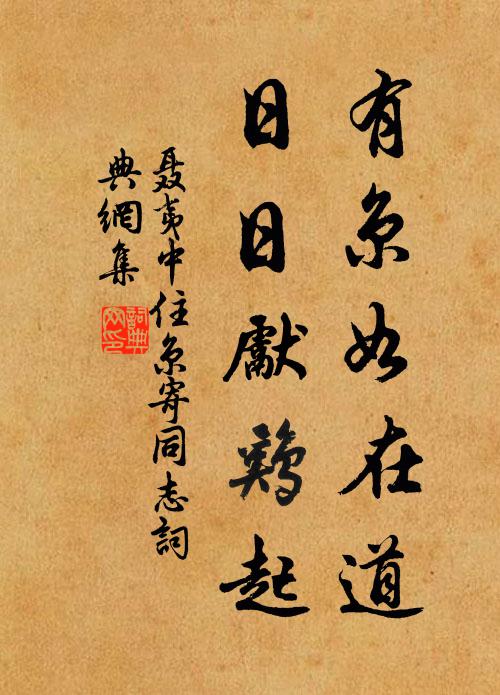 有京如在道
日日獻鷄起
聂夷中住京寄同志詞
典網集
詞典
网印